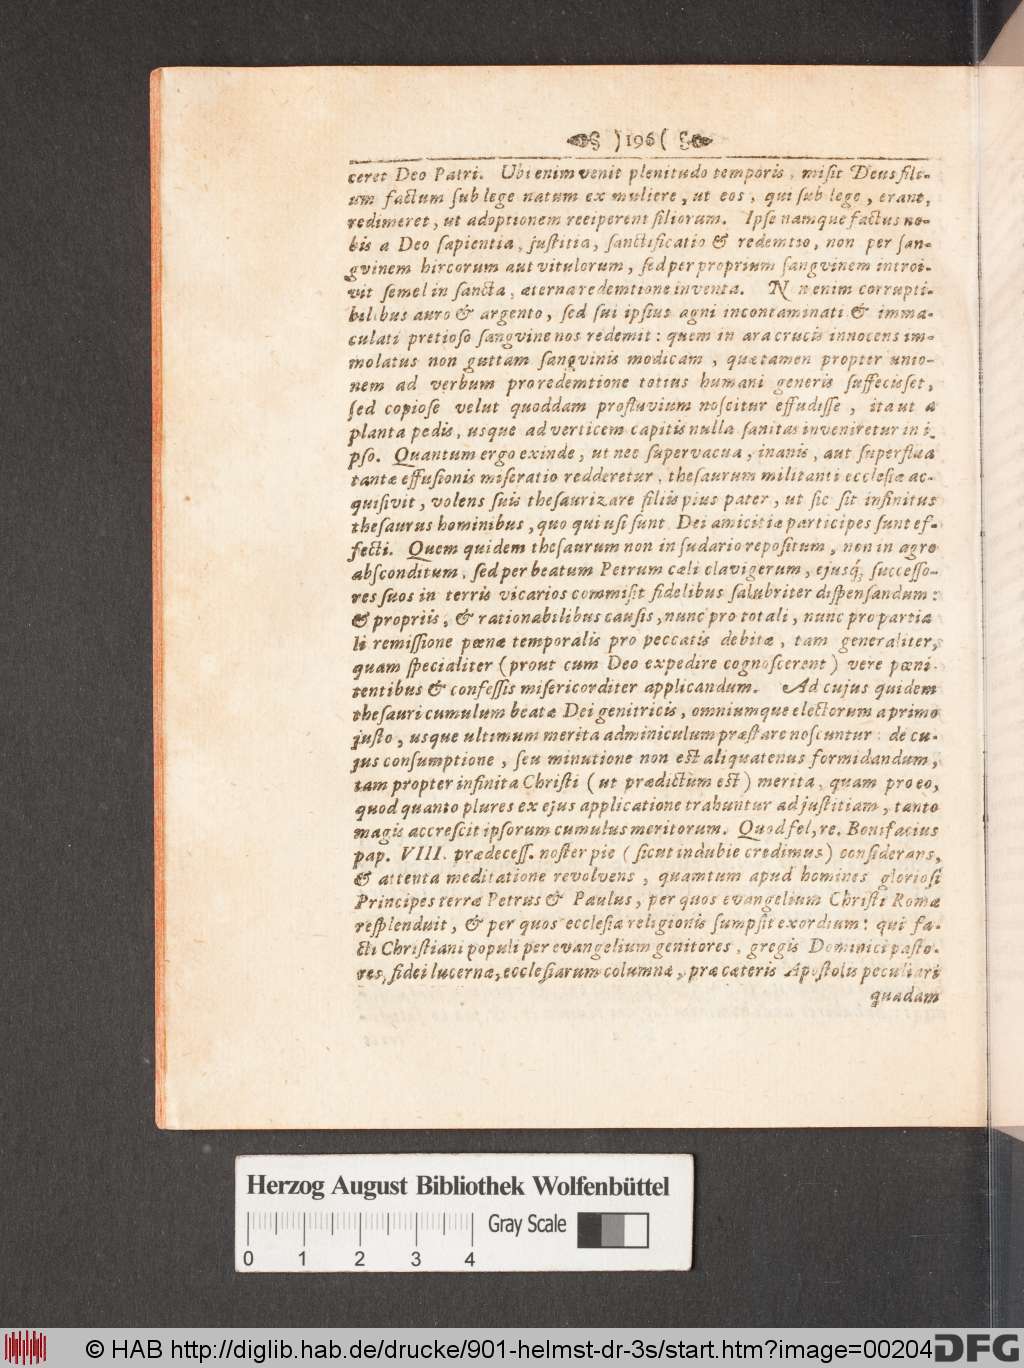 )196(
ceret Deo Patri. Ubi enim venit plenitudo temporis, misit Deus fili-
um factum sub lege natum ex muliere, ut eos, qui sub lege, erant,
redimeret, ut adoptionem reciperent filiorum. Ipse namque factus no-
bis a Deo sapientia, justitia, sanctificatio & redemtio, non per san-
gvinem hircorum aut vitulorum, sed per proprium sangvinem introi-
vit semel in sancta, æterna redemtione inventa. Non enim corrupti-
bilibus auro & argento, sed sui ipsius agni incontaminati & imma-
culati pretioso sangvine nos redemit: quem in ara crucis innocens im-
molatus non guttam sangvinis modicam, quæ tamen propter unio-
nem ad verbum pro redemtione totius humani generis suffecisset,
sed copiose velut quoddam profluvium noscitur effudisse, ita ut a
planta pedis, usque ad verticem capitis nulla sanitas inveniretur in i-
pso. Quantum ergo exinde, ut nec supervacua, inanis, aut superflua
tantæ effusionis miseratio redderetur, thesaurum militanti ecclesiæ ac-
quisivit, volens suis thesaurizare filiis pius pater, ut sic sit infinitus
thesaurus hominibus, quo qui usi sunt Dei amicitiæ participes sunt ef-
fecti. Quem quidem thesaurum non in sudario repositum, non in agro
absconditum, sed per beatum Petrum cæli clavigerum, ejusq́; successo-
res suos in terris vicarios commisit fidelibus salubriter dispensandum:
& propriis, & rationabilibus causis, nunc pro totali, nunc pro partia
li remissione pœnæ temporalis pro peccatis debitæ, tam generaliter,
quam specialiter (prout cum Deo expedire cognoscerent) vere pœni-
tentibus & confessis misericorditer applicandum. Ad cujus quidem
thesauri cumulum beatæ Dei genitricis, omniumque electorum a primo
justo, usque ultimum merita adminiculum præstare noscuntur: de cu-
jus consumptione, seu minutione non est aliquatenus formidandum,
tam propter infinita Christi (ut prædictum est) merita, quam pro eo,
quod quanto plures ex ejus applicatione trahuntur ad justitiam, tanto
magis accrescit ipsorum cumulus meritorum. Quod fel, re. Bonifacius
pap. VIII. prædecess. noster pie (sicut indubie credimus) considerans,
& attenta meditatione revolvens, quamtum apud homines gloriosi
Principes terræ Petrus & Paulus, per quos evangelium Christi Romæ
resplenduit, & per quos ecclesia religionis sumpsit exordium: qui fa-
cti Christiani populi per evangelium genitores, gregis Dominici pasto-
res, fidei lucernæ, ecclesiarum columnæ, præ cæteris Apostolis peculiari
quadam
Herzog August Bibliothek Wolfenbüttel
0 1 2 3 4 Gray Scale
© HAB http://diglib.hab.de/drucke/901-helmst-dr-3s/start.htm?image=00204 DFG